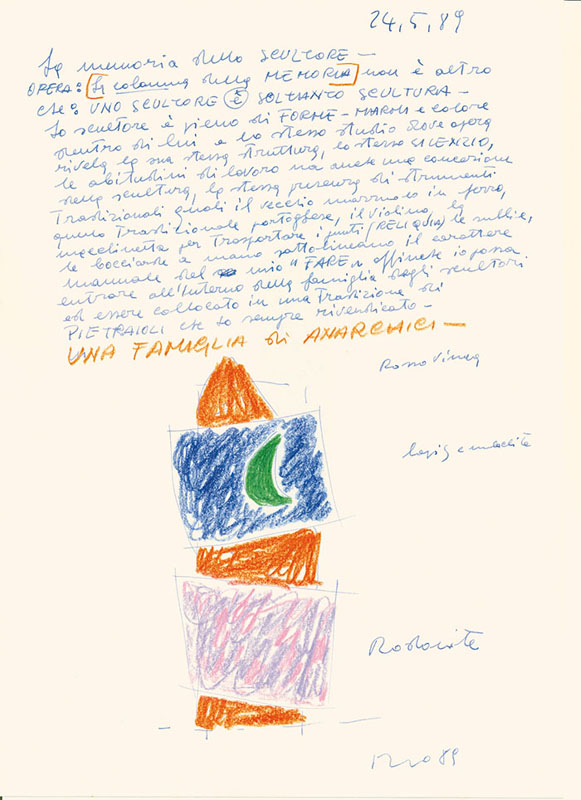 24,5,89
La memoria dello SCULTORE —
OPERA: La colonna della MEMORIA non è altro
che: UNO SCULTORE È SOLTANTO SCULTURA —
Lo scultore è pieno di FORME - MARMI e colore
dentro di lui e lo stesso studio dove opera
rivela la sua stessa struttura, lo stesso SILENZIO,
le abitudini di lavoro ma anche una concezione
della scultura, la stessa presenza di strumenti
tradizionali quali il vecchio in ferro,
quello tradizionale portoghese, il violino, la
macchinetta per trasportare i punti (RELIQUIA) le subbie,
le bocciarde a mano sottolineano il carattere
manuale del mio "FARE" affinché io possa
entrare all'interno della famiglia degli scultori
ed essere collocato in una tradizione di
PIETRAIOLI che ho sempre rivendicato —
UNA FAMIGLIA di ANARCHICI —
Rosso
lapis e malachite
Rodocrite
89